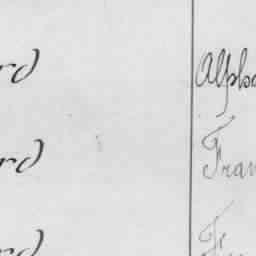 rd Alpho
rd Fran
rd